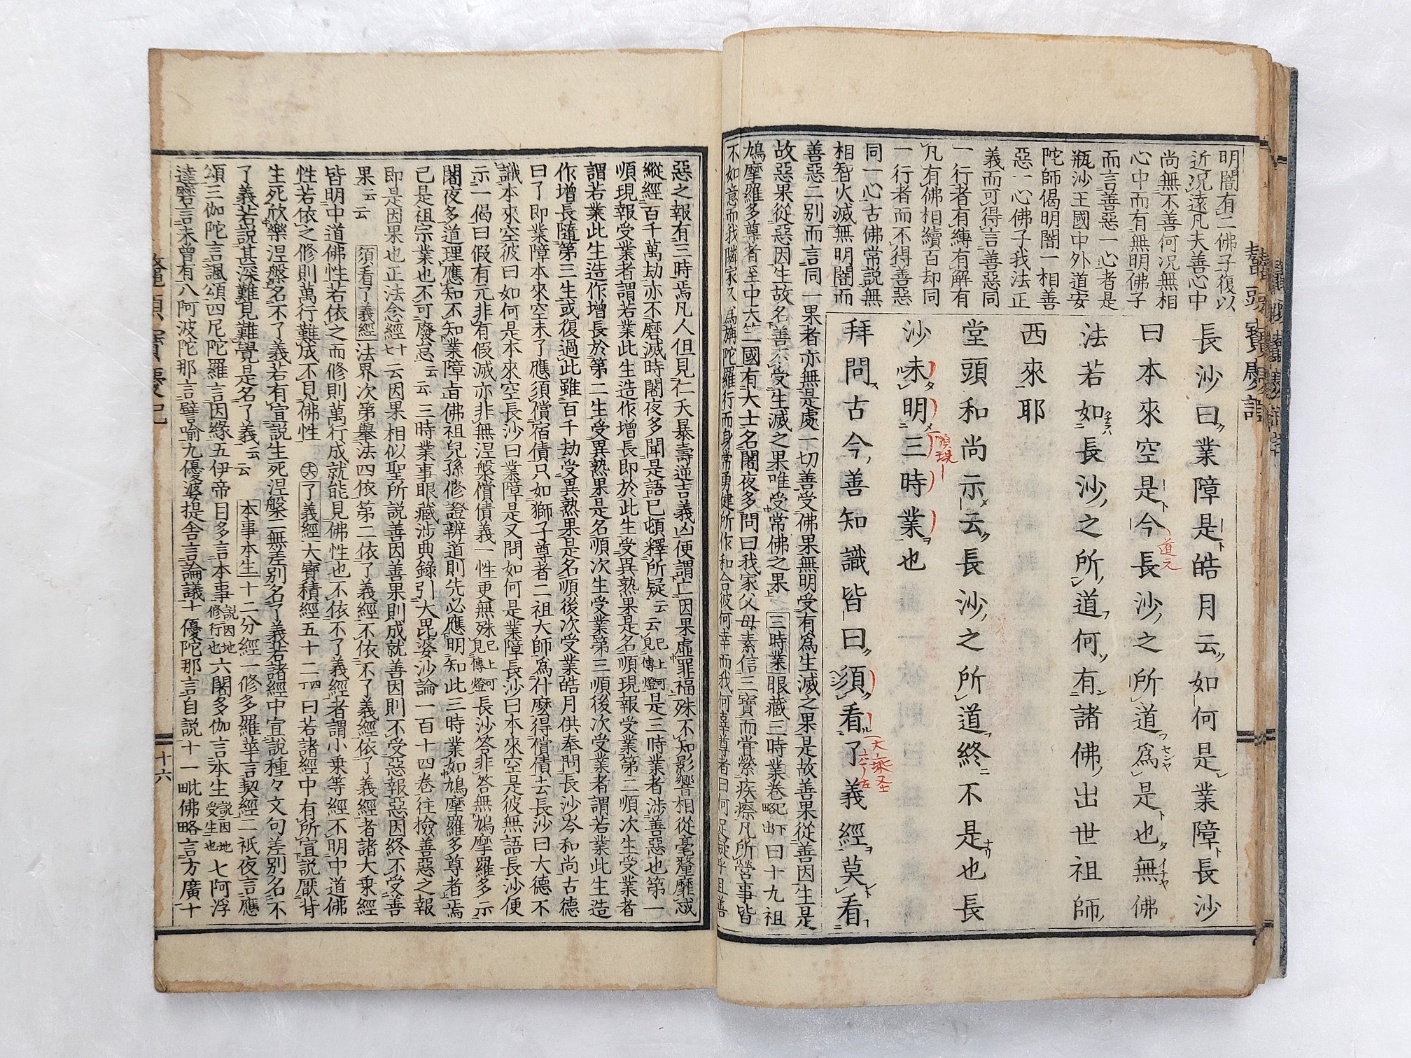 明闇有二佛子復以
近況遠凡夫善心中
尚無不善何況無相
心中而有無明佛子
而言善惡一心者是
瓶沙王國中外道安
陀師偈明闇一相善
惡一心佛子我法正
義而可得言善惡同
一行者有縛有解有
凡有佛相續百却同
一行者而不得善惡
同一心古佛常説無
相智火滅無明闇而
長沙曰業障是皓月云如何是業障長沙
曰本來空是今長沙之所道爲是也無佛
法若如長沙之所道何有諸佛出世祖師
西來耶
堂頭和尚示云長沙之所道終不是也長
沙未明三時業也
拜問古今善知識皆曰須看了義經莫看
善惡二別而言同一果者亦無是處一切善受佛果無明受有爲生滅之果是故善果從善因生是
故惡果從惡因生故名善不受生滅之果唯受常佛之果 三時業 眼藏三時業卷 記下略出 曰十九祖
鳩摩羅多尊者至中天竺國有大士名闍夜多問曰我家父母素信三寶而甞縈疾瘵凡所營事皆
不如意而我隣家久爲旃陀羅行而身常勇健所作和合彼何幸而我何辜尊者曰何足疑乎且善
惡之報有三時焉凡人但見仁夭暴壽逆吉義凶便謂亡因果虛罪福殊不知影響相從毫釐靡忒
縱經百千萬劫亦不磨滅時闍夜多聞是語已頓釋所疑云云 已上見傳燈 是三時業者涉善惡也第一
順現報受業者謂若業此生造作增長即於此生受異熟果是名順現報受業第二順次生受業者
謂若業此生造作增長於第二生受異熟果是名順次生受業第三順後次受業者謂若業此生造
作增長隨第三生或復過此雖百千劫受異熟果是名順後次受業皓月供奉問長沙岑和尚古德
曰了即業障本來空未了應須償宿債只如獅子尊者二祖大師爲什麼得償債去長沙曰大德不
識本來空彼曰如何是本來空長沙曰業障是又問如何是業障長沙曰本來空是彼無語長沙便
示一偈曰假有元非有假滅亦非無涅槃償債義一性更無殊 已上傳燈 長沙答非答無鳩摩羅多示
闍夜多道理應知不知業障亩佛祖兒孫修證辨道則先必應明知此三時業如鳩摩羅多尊者焉
已是祖宗業也不可廢怠云云 三時業事眼藏涉典錄引大毘婆沙論一百十四卷往撿善惡之報
即是因果也正法念經七云因果相似聖所説善因善果則成就善因則不受惡報惡因終不受善
果云云 須看了義經 法界次第擧法四依第二依了義經不依不了義經依了義經者諸大乘經
皆明中道佛性若依之而修則萬行成就能見佛性也不依不了義經者謂小乘等經不明中道佛
性若依之修則萬行難成不見佛性 又了義經大寶積經五十二四曰若諸經中有所宣説厭背
生死欣樂涅槃名不了義若有宣説生死涅槃二無差別名了義若諸經中宣説種々文句差別名不
了義若説甚深難見難覺是名了義云云 本事本生十二分經一修多羅華言契經二祇夜言應
頌三伽陀言諷頌四尼陀羅言因緣五伊帝目多言本事 説因地修行也 六闍多伽言本生 説因地受生也 七阿浮
達磨言未曾有八阿波陀那言譬喻九優婆提舍言論議十優陀那言自説十一毗佛略言方廣十
十六